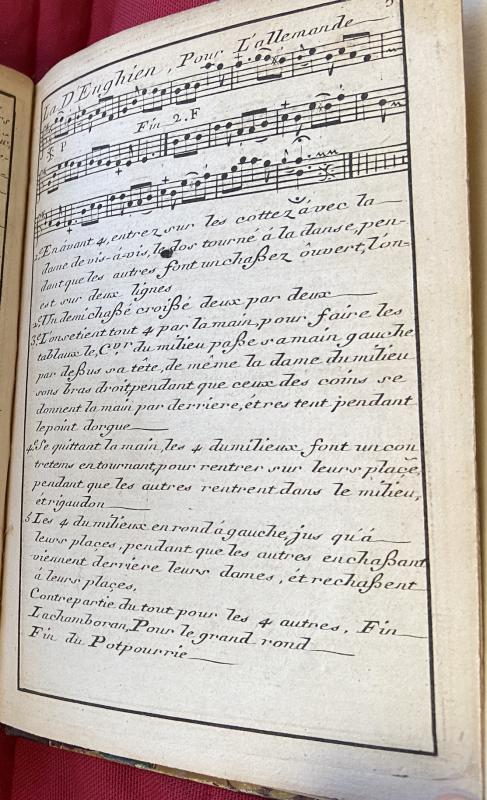 La D'Enghien, Pour L'allemande
P Fin 2. F
1.º En avant 4, entrez sur les cottez ávec la
dame de vis-à-vis, le dos tourné á la danse, pen-
dant que les autres font un chaßez ôuvert, l'on-
est sur deux lignes
2.º Un demi chaßé croißé deux par deux
3.º L'on se tient tout 4 par la main, pour faire les
tablaux le, C.vr du milieu paße sa main gauche
par deßus sa tête, de même la dame du milieu
sous bras droit, pendant que ceux des coins se
donnent la main par derriere, ét res tent pendant
le point dorgue
4.º Se quittant la main, les 4 du milieux font un con
tretems en tournant, pour rentrer sur leurs plaçe,
pendant que les autres rentrent dans le milieu,
ét rigaudon
5 Les 4 du milieux en rond á gauche, jus qu'á
leurs places, pendant que les autres en chaßant
viennent dérriere leurs dames, ét rechaßent
á leurs plaçes,
Contre partie du tout pour les 4 autres, Fin
Lachamboran, Pour le grand rond
Fin du Potpourrie